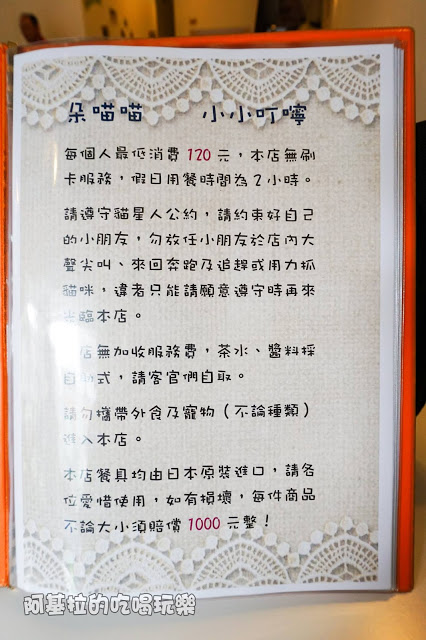 朵喵喵　　小小叮嚀
每個人最低消費 120 元，本店無刷
卡服務，假日用餐時間為 2 小時。
請遵守貓星人公約，請約束好自己
的小朋友，勿放任小朋友於店內大
聲尖叫、來回奔跑及追趕或用力抓
貓咪，違者只能請願意遵守時再來
光臨本店。
店無加收服務費，茶水、醬料採
自助式，請客官們自取。
請勿攜帶外食及寵物（不論種類）
進入本店。
本店餐具均由日本原裝進口，請各
位愛惜使用，如有損壞，每件商品
不論大小須賠償 1000 元整！
阿基拉的吃喝玩樂